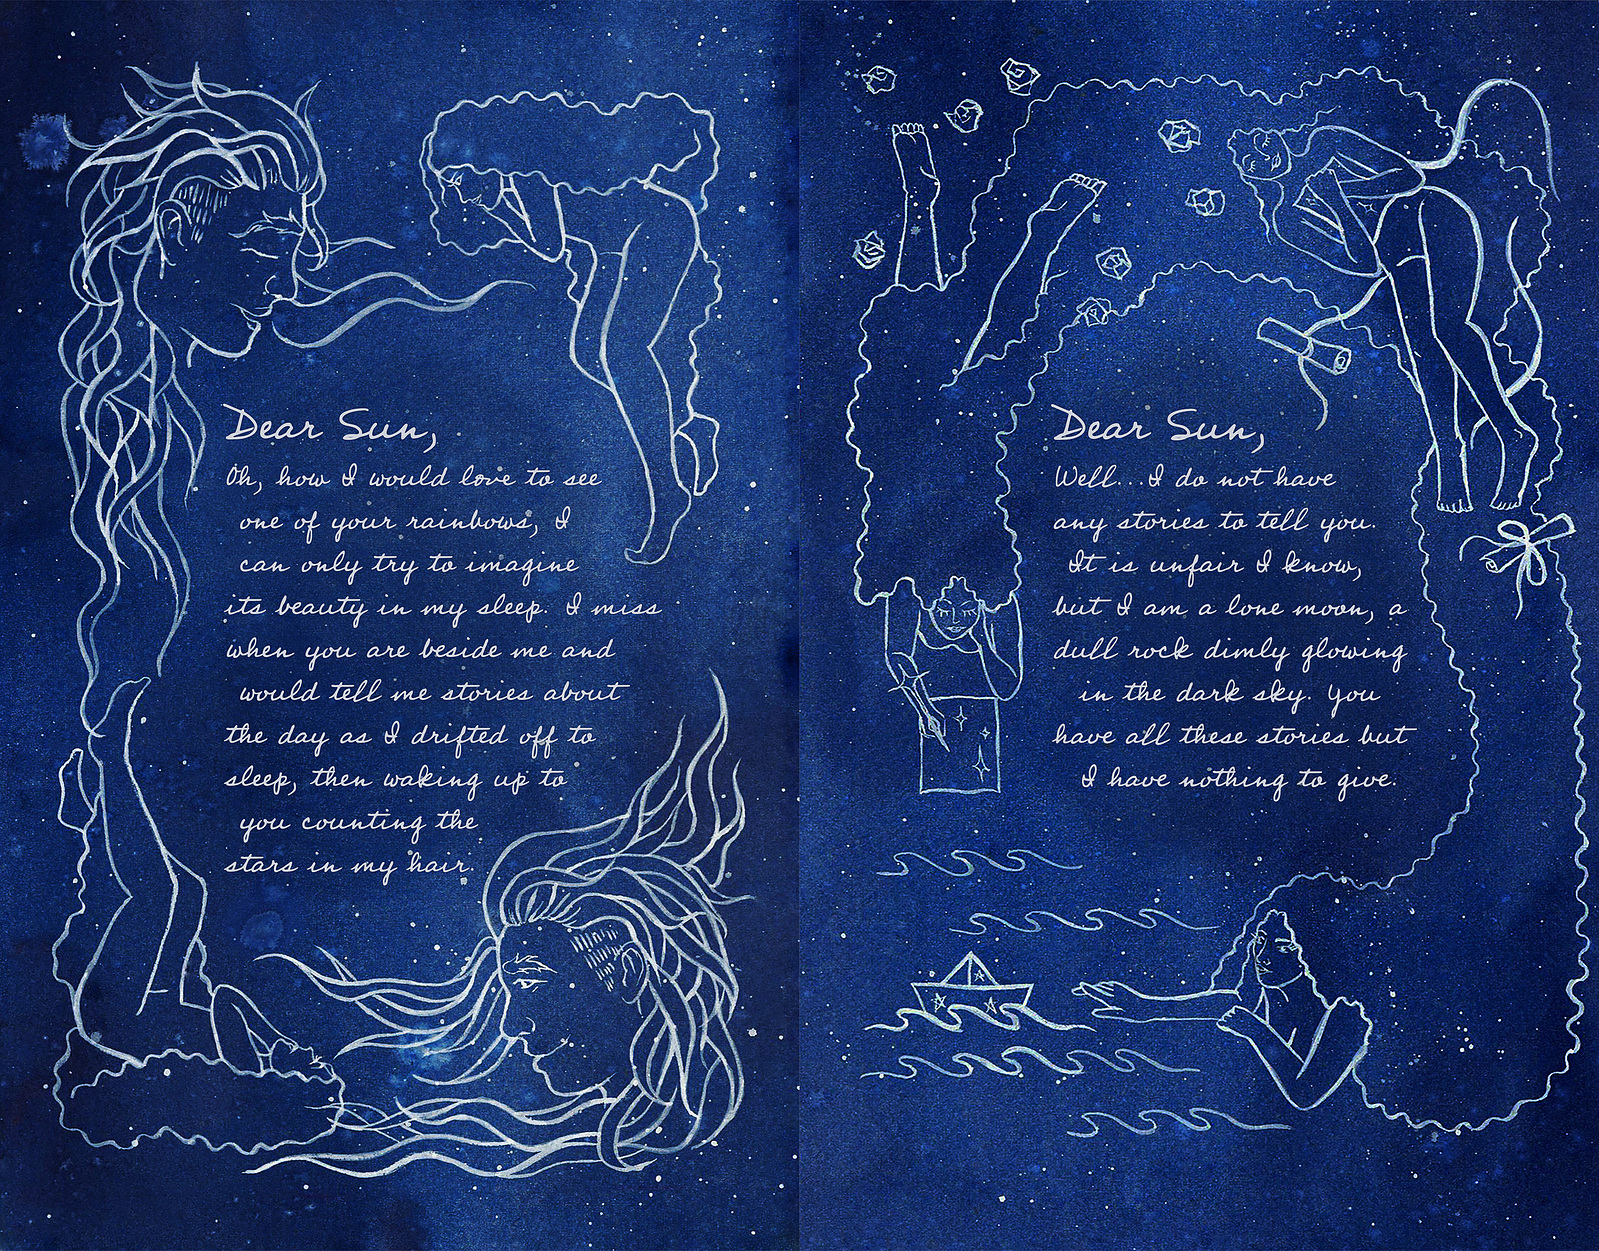 Dear Sun,
Oh, how I would love to see
one of your rainbows, I
can only try to imagine
its beauty in my sleep. I miss
when you are beside me and
would tell me stories about
the day as I drifted off to
sleep, then waking up to
you counting the
stars in my hair.
Dear Sun,
Well...I do not have
any stories to tell you.
It is unfair I know,
but I am a lone moon, a
dull rock dimly glowing
in the dark sky. You
have all these stories but
I have nothing to give.